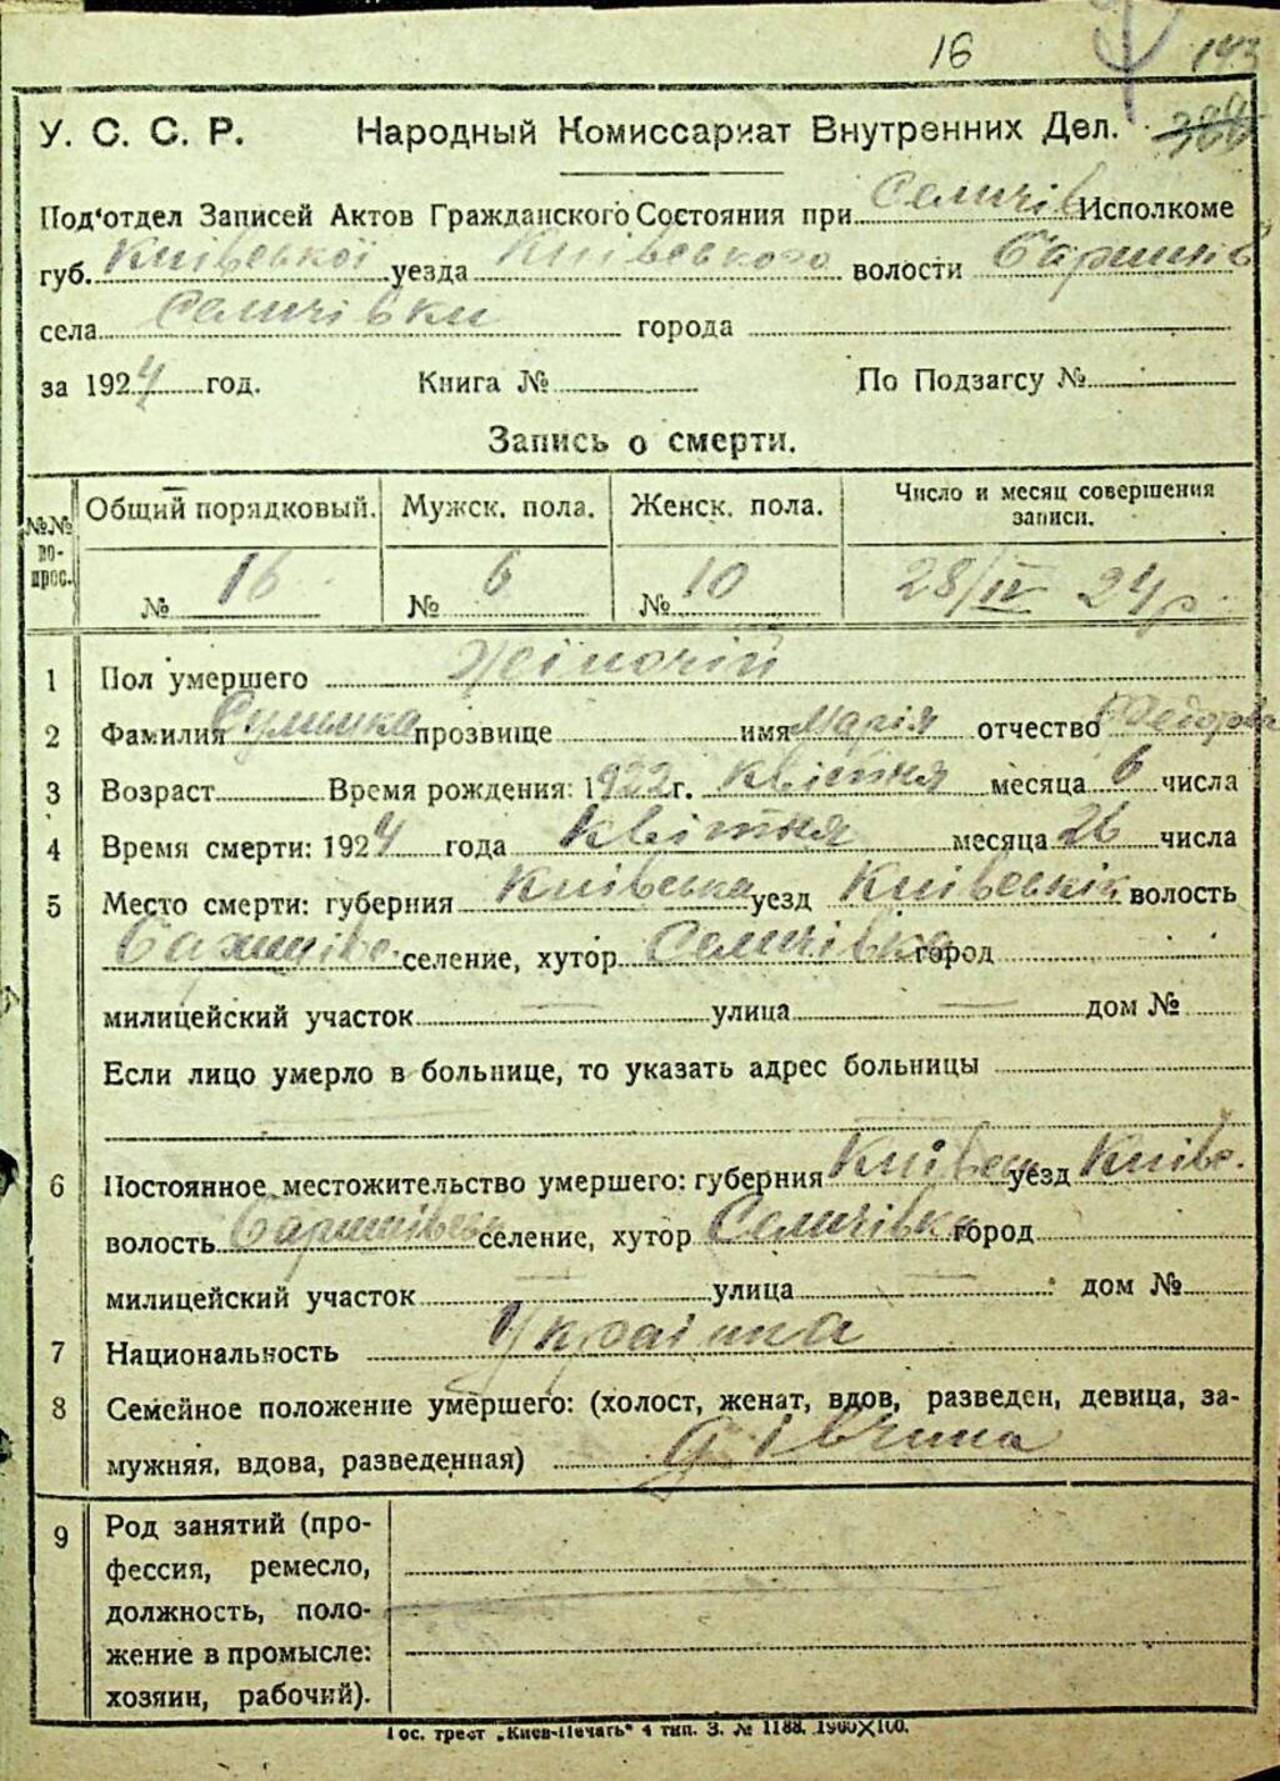 16 143
У. С. С. Р. Народный Комиссариат Внутренних Дел.
Под'отдел Записей Актов Гражданского Состояния при Семичів Исполкоме
губ. Київської уезда Київського волости Баришів
села Семичівки города
за 1924 год. Книга № По Подзагсу №
Запись о смерти.
№№ вопрос. Общий порядковый. Мужск. пола. Женск. пола. Число и месяц совершения записи.
№ 16 № 6 № 10 28/IV 24 р.
1 Пол умершего Жіночій
2 Фамилия прозвище имя Марія отчество Федоров
3 Возраст Время рождения: 1922 г. квітня месяца 6 числа
4 Время смерти: 1924 года Квітня месяца 26 числа
5 Место смерти: губерния Київська уезд Київській волость
селение, хутор Семичівка город
милицейский участок — улица — дом №
Если лицо умерло в больнице, то указать адрес больницы
6 Постоянное местожительство умершего: губерния Київськ уезд Київс.
волость Баришівськ селение, хутор Семичівка город
милицейский участок — улица — дом №
7 Национальность Украінка
8 Семейное положение умершего: (холост, женат, вдов, разведен, девица, за-
мужняя, вдова, разведенная) дівчина
9 Род занятий (про-
фессия, ремесло,
должность, поло-
жение в промысле:
хозяин, рабочий).
Гос. трест „Киев-Печать" 4 тип. З. № 1188. 1900×100.